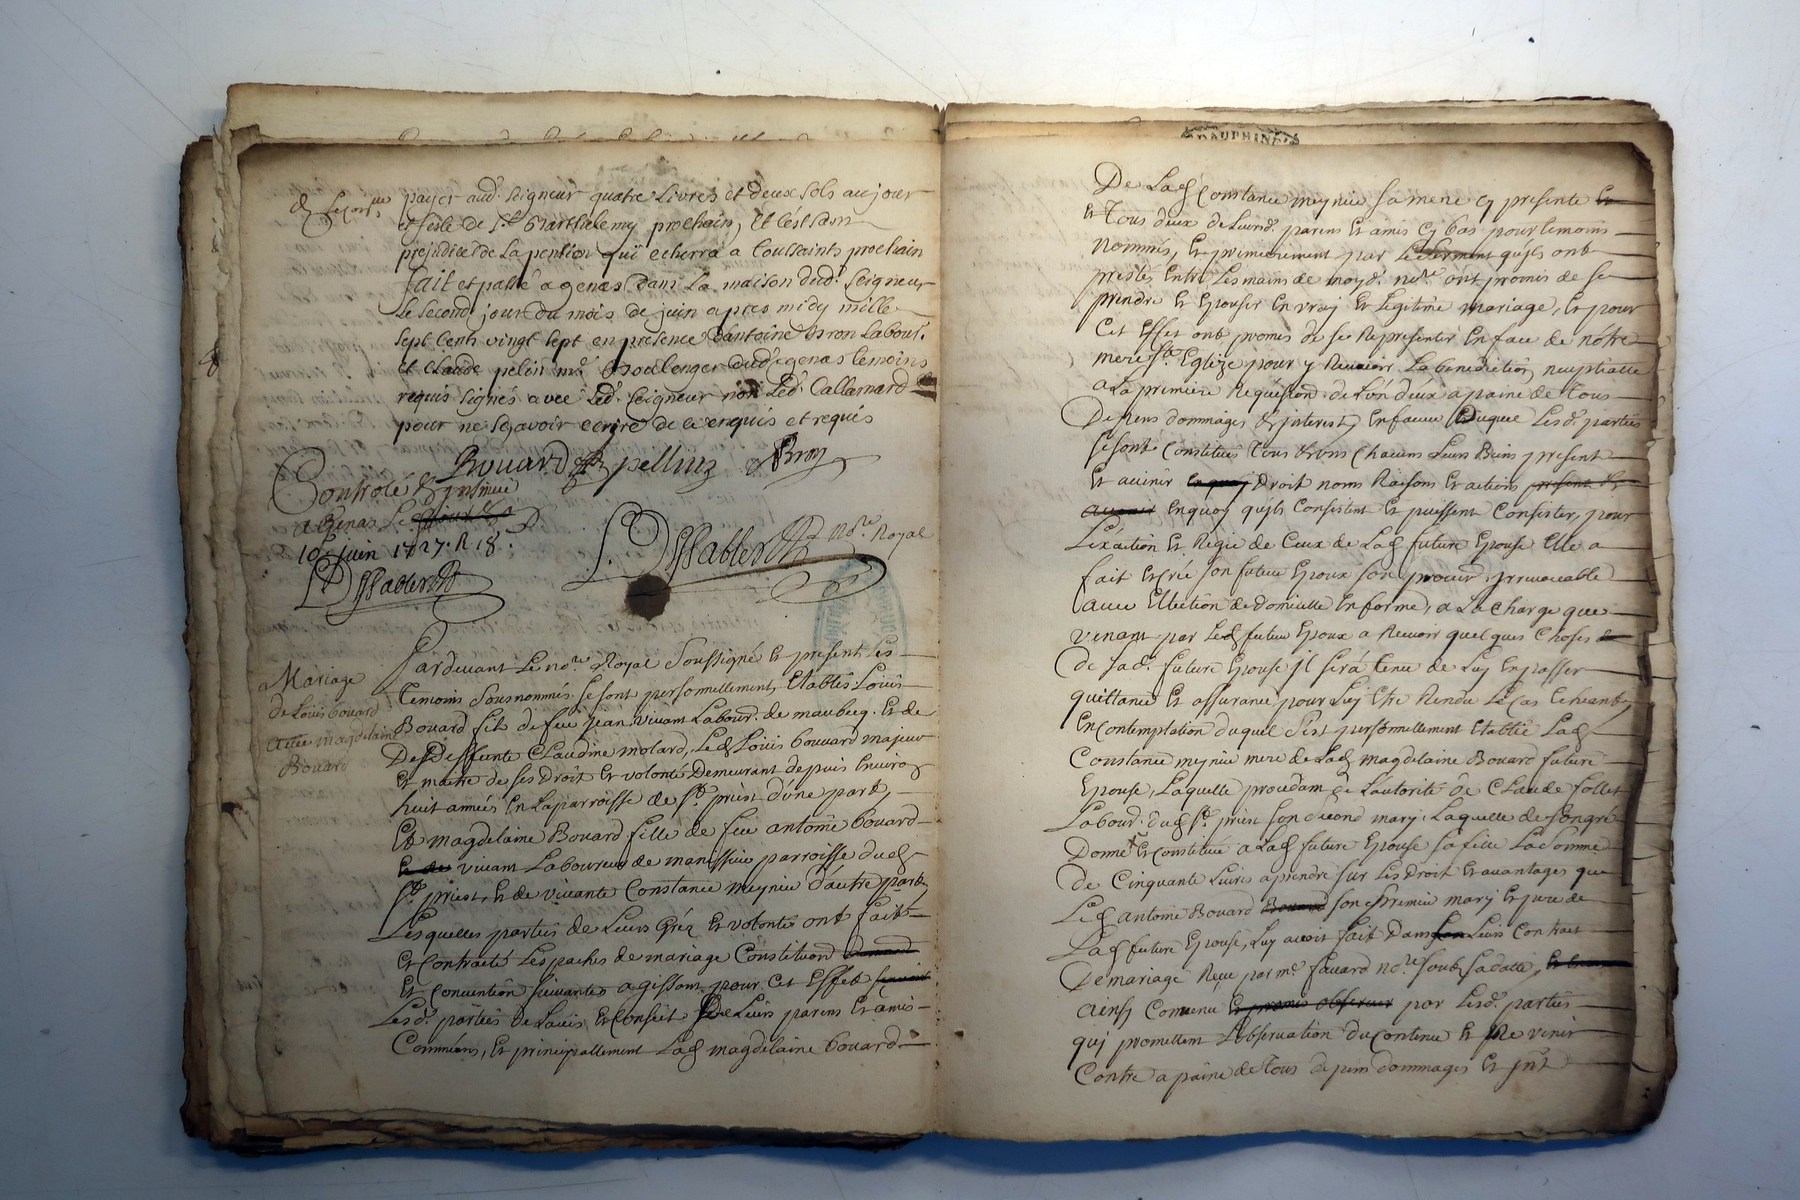 payer aud. Seigneur quatre Livres et deux sols au jour
et feste de St. Barthelemy prochain, et c'est sans
prejudice de La pention qui echerra a Toussaints prochain
fait et passé a genas dans La maison dud. Seigneur
Le second jour du mois de juin apres midy mille
sept cents vingt sept en presence d'antoine Labour.
et claude pelin me. Boulenger dud. genas temoins
requis signés avec Led. Seigneur non Led. Callamard
pour ne sçavoir ecrire de ce enquis et requis
Bouard pellin
Controlé & insinué
a Genas Le
10e juin 1727. R 18s.
Nore. Royal
Mariage
de Louis bouard
avec magdelaine
Bouard
Pardevant Le nore. Royal Soussigné et present Les
temoins sousnommés se sont personnellement Etablis Louis
Bouard fils de feu jean vivant Labour. de maubecq. Et de
Deffunte CLaudine molard, Led. Louis bouard majeur
Et maitre de ses Droit Et volonté Demeurant depuis Environ
huit années En Laparroisse de St. priest d'une part,
Et magdelaine Bouard fille de feu antoine bouard
vivant Laboureur de manissieu parroisse dud.
St. priest, Et de vivante Constance meynieu d'autre part,
Lesquelles parties de Leurs Gréz Et volontés ont fait
Et Contracté Les paches de mariage Constitution
Et Convention suivantes agissant pour Cet Effet
Lesd. parties de Lavis Et Conseil De Leurs parens Et amis
Communs, Et principallement Lad. magdelaine bouard
De Lad. Constance meynieu sa mere cy presente
Et Tous deux de Leursd. parens Et amis Cy bas pour temoins
Nommés, Et premierement par Le serment qu'ils ont
prestés Entre Les mains de moyd. nore. ont promis de se
prendre Et Epouser En vray Et Legitime mariage, Et pour
Cet Effet ont promis de se Representer En face de nôtre
mere Ste. Eglize pour y Recevoir La benediction nuptialle
a La premiere Requisition de L'un d'eux a paine de Tous
Depens dommages & interest, En faveur Duquel Lesd. parties
se sont Constitués Tous & uns Chacuns Leurs Biens present
Et avenir Droit noms Raisons Et actions
Enquoy qu'ils Consistent Et puissent Consister, pour
L'exaction Et Regie de Ceux de Lad. future Epouse Elle a
fait Et Créé son futeur Epoux son procur. jrrevocable
avec Ellection de domicille En forme, a La Charge que
venant par Led. futeur Epoux a Recevoir quelques Choses
De Sad. future Epouse jl sera tenu de Luy En passer
quittance Et assurance pour Luy Etre Rendu Le Cas Echeant,
En Contemplation duquel s'est personnellement Etablie Lad.
Constance meynieu mere de Lad. magdelaine Bouard future
Epouse, Laquelle procedant de L'autorité de CLaude follet
Labour. dud. St. priest son second mary. Laquelle de son gré
Donne Et Constitué a Lad. future Epouse sa fille La somme
De Cinquante Livres aprendre sur Les Droit Et avantages que
Led. antoine Bouard son premier mary Et pere de
Lad. future Epouse, Luy avoit fait Dans Leurs Contract
Demariage Reçu par me. favard nore. soub sa datte,
ainsy Convenu par Lesd. parties
qui promettent L'observation du Contenu Et Ne venir
Contre a paine de Tous depens dommages Et jnt.